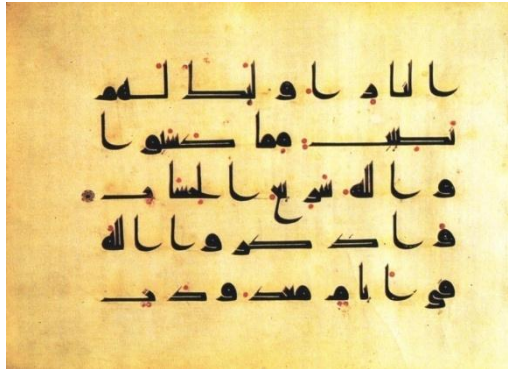 النار اولئك لهم
نصيب مما كسبوا
والله سريع الحساب
واذكروا الله
في ايام معدودت